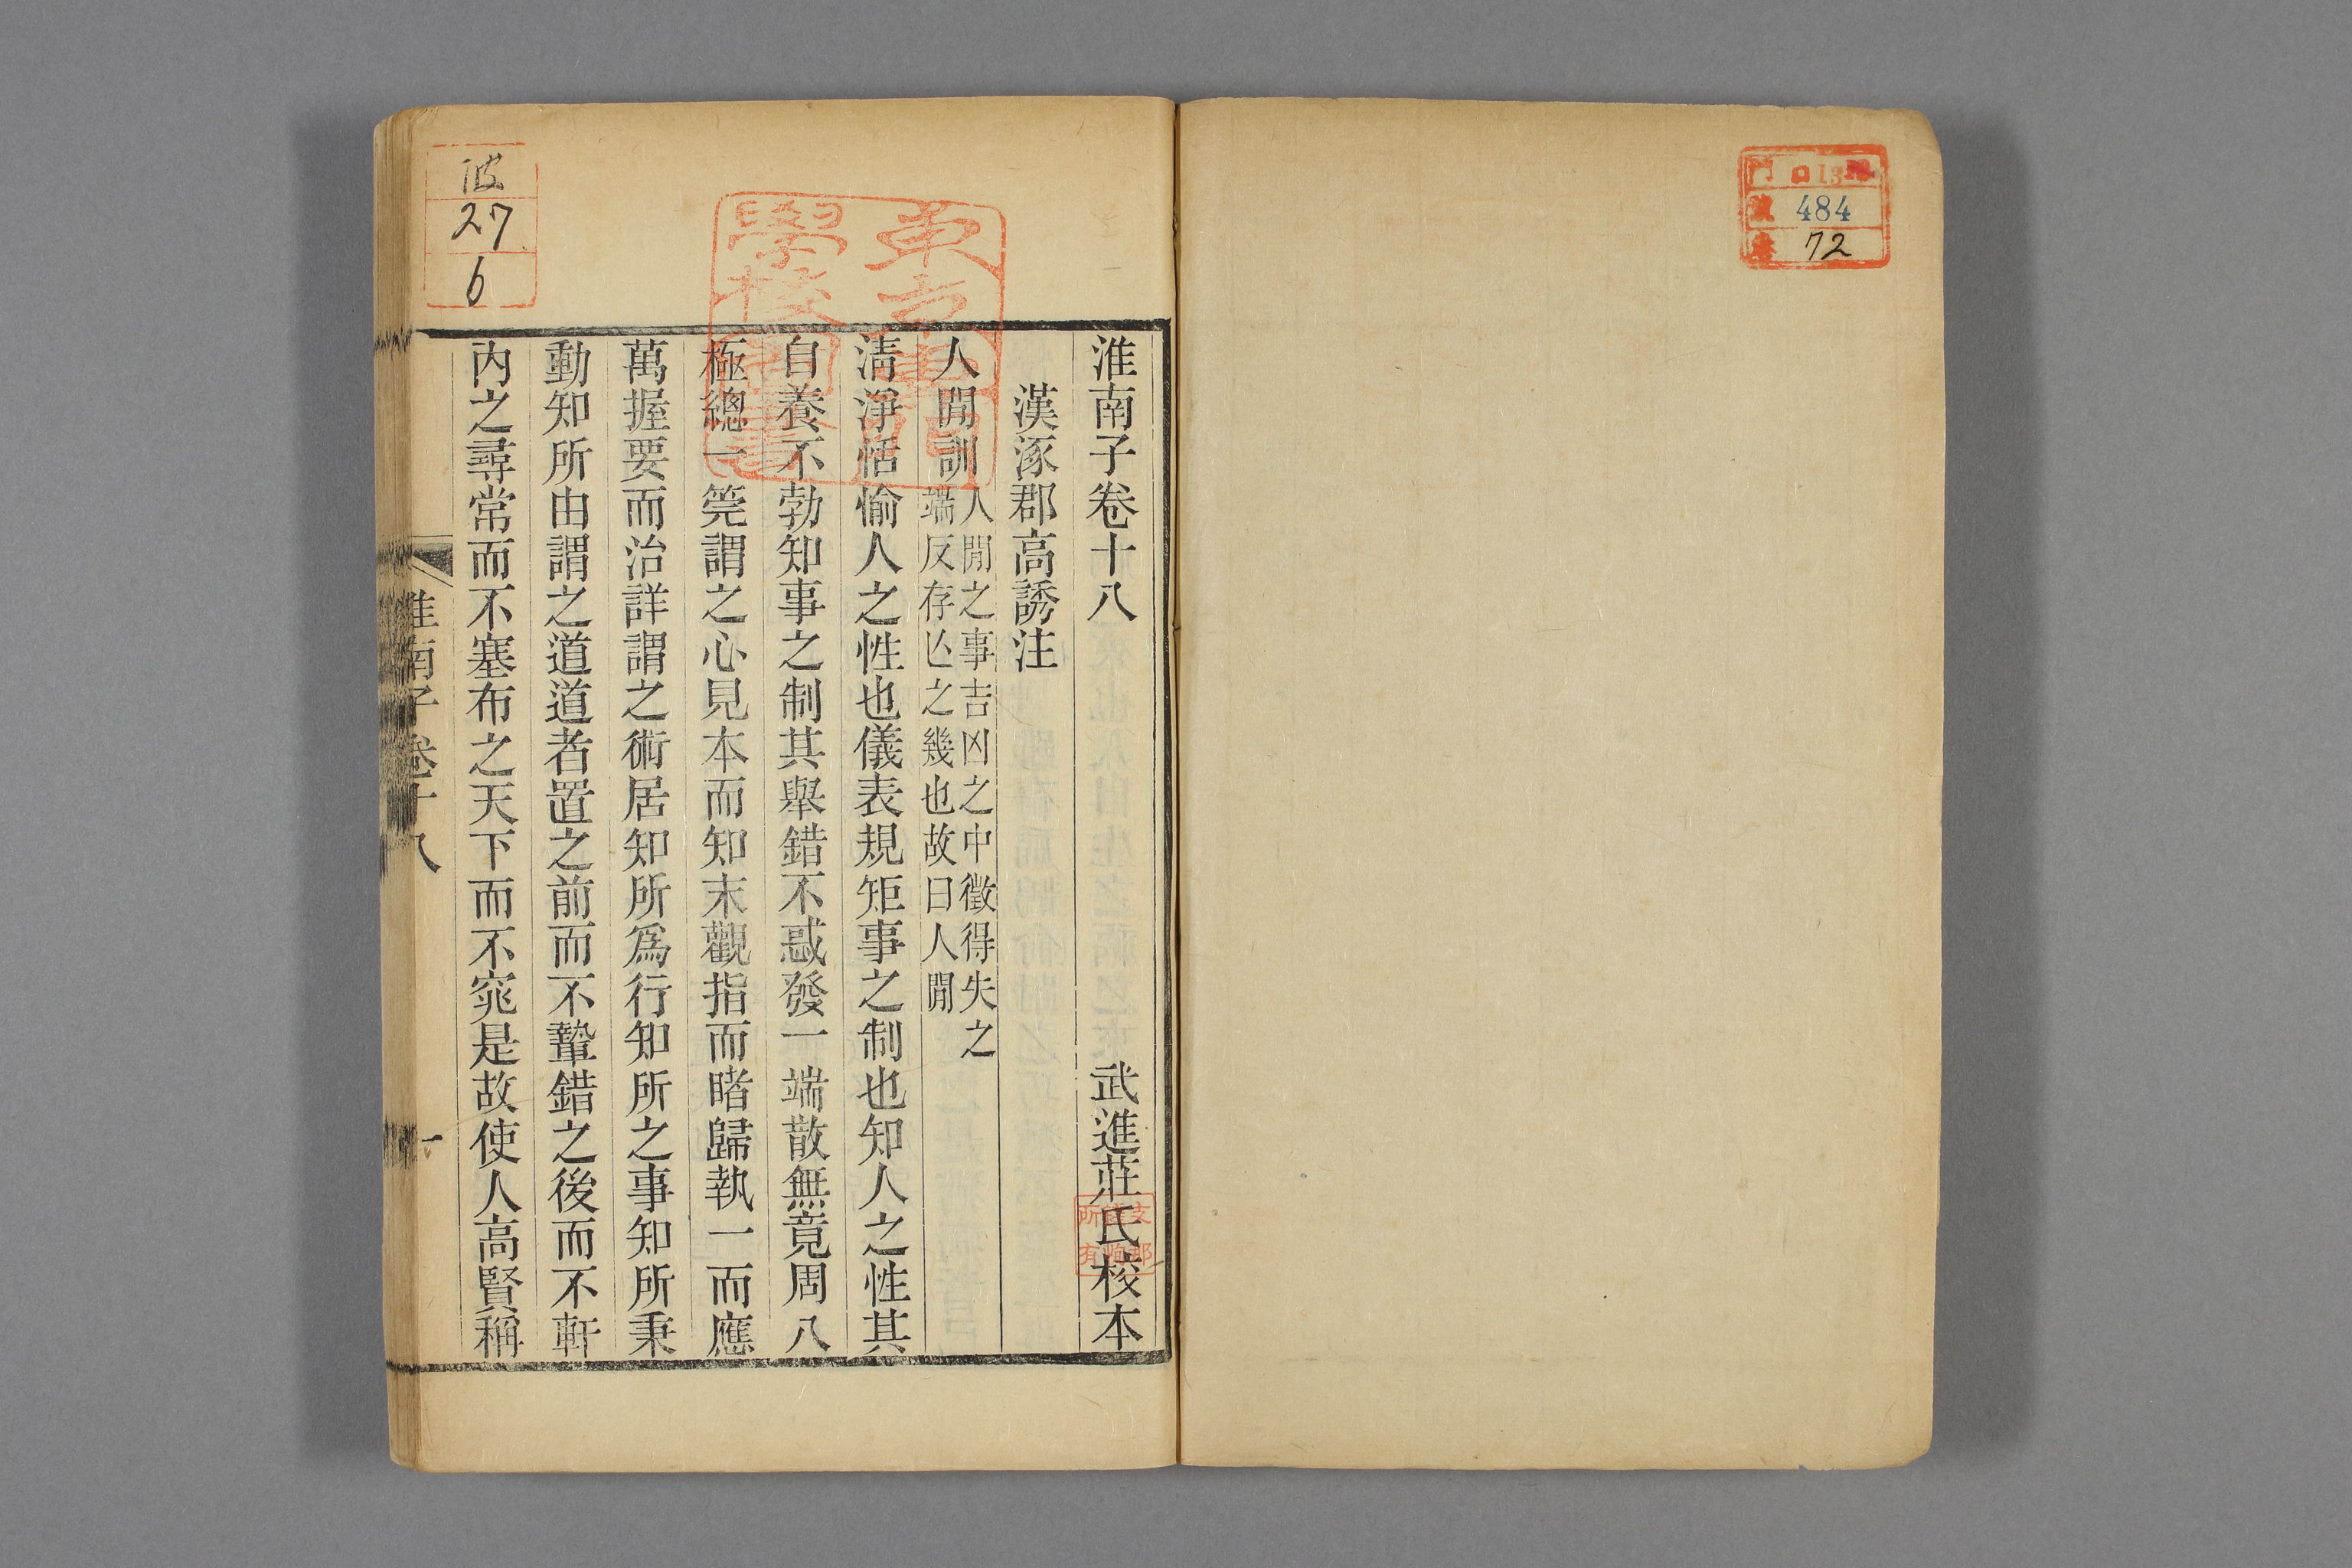 門 口13
號 484
卷 72
淮南子卷十八 武進莊氏校本
漢涿郡高誘注
人閒訓 人閒之事吉凶之中徵得失之
端反存亾之幾也故曰人閒
淸淨恬愉人之性也儀表規矩事之制也知人之性其
自養不勃知事之制其舉錯不惑發一端散無竟周八
極總一筦謂之心見本而知末觀指而睹歸執一而應
萬握要而治詳謂之術居知所爲行知所之事知所秉
動知所由謂之道道者置之前而不䡖錯之後而不軒
內之尋常而不塞布之天下而不窕是故使人高賢稱
淮南子卷十八 一
27
6